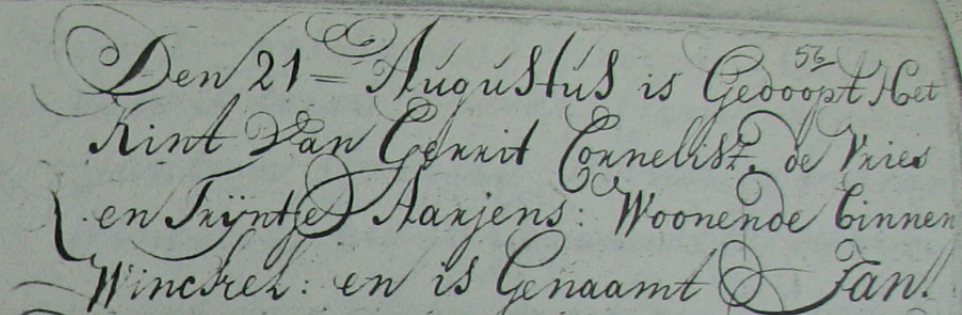 56
Den 21 = Augustus is Gedoopt Het
Kint Van Gerrit Cornelisz. de Vries
en Trÿntje Aarjens: Woonende binnen
Winckel: en is Genaamt Jan!